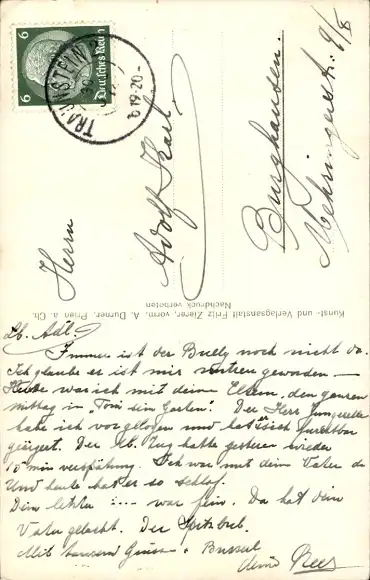 6
6
Deutsches Reich
TRAUNSTEIN
19-20
Herrn
Adolf Karl
Burghausen.
Mehringerstr. 9/8
Kunst- und Verlagsanstalt Fritz Zierer, vorm. A. Durner, Prien a. Ch.
Nachdruck verboten
Lb. Adl!
Immer ist der Bully noch nicht da.
Ich glaube er ist mir untreu geworden —
Heute war ich mit deine Eltern, den ganzen
mittag in „Toni sein Garten". Der Herr
habe ich vorgelogen und hat sich furchtbar
geärgert. Der Zug hatte gestern wieder
10 min verspätung. Ich war mit dein Vater da
Und heute hat er so schlaf.
Dein letzter ... war fein. Da hat dein
Vater gelacht. Der Spitzbub.
Mit tausend Grüsse + Bussel
deine